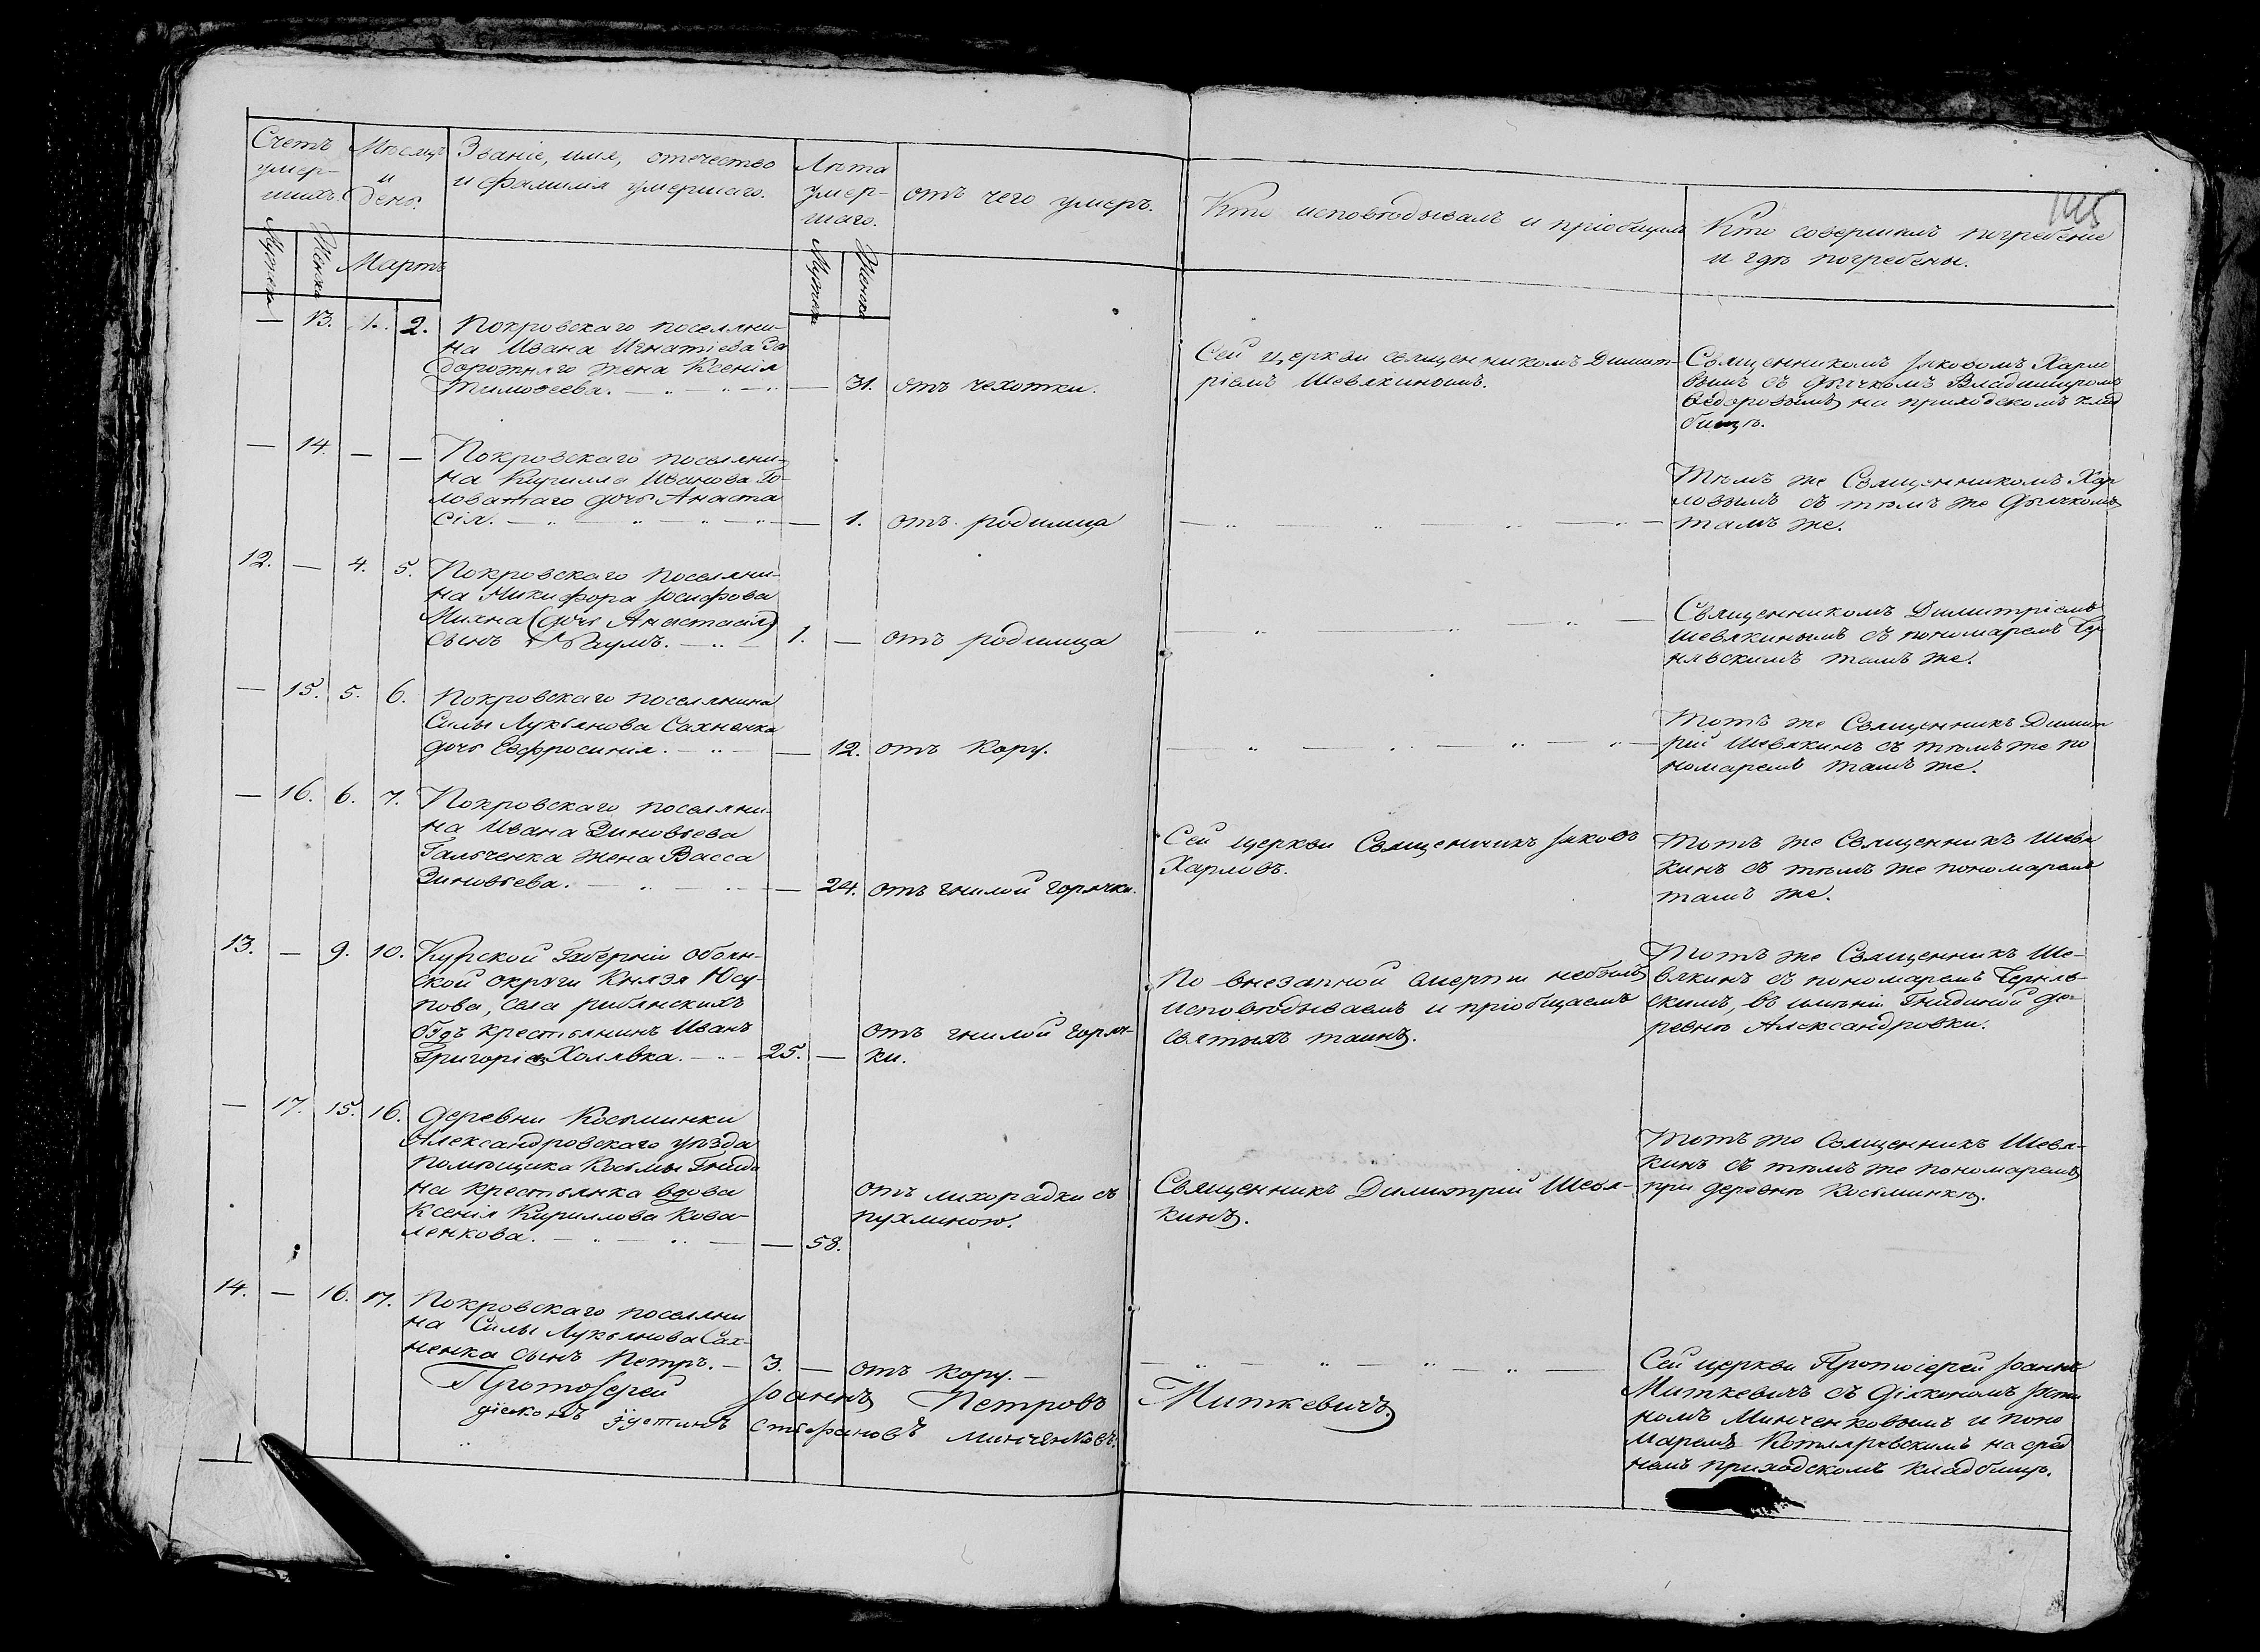 145
Счетъ
умер-
шихъ.
Мѣсяцъ
и
день.
Званіе, имя, отечество
и фамилія умершаго.
Лѣта
умер-
шаго.
отъ чего умеръ.
Кто исповѣдывалъ и пріобщилъ
Кто совершалъ погребеніе
и гдѣ погребены.
Мужеск
Женска
Мартъ
Мужеска
Женска
— 13. 1. 2. Покровскаго поселяни-
на Ивана Игнатіева За
дорожняго жена Ксенія
Тимоѳеева. — 31. отъ чехотки.
Сей церкви священникомъ Димит-
ріемъ Шевякинымъ.
Священникомъ Іаковомъ Харло
вымъ съ дьячкомъ Владимиромъ
Ѳедоровымъ на приходскомъ клад
бищѣ.
— 14. — — Покровскаго поселяни-
на Кирилла Иванова Го-
ловатаго дочь Анаста
сія. — 1. отъ родимца
Тѣмъ же Священникомъ Хар
ловымъ съ тѣмъ же дьячкомъ
тамъ же.
12. — 4. 5. Покровскаго поселяни-
на Никифора Іосифова
Михна (дочь Анастасія)
сынъ Наумъ. 1. — отъ родимца
Священникомъ Димитріемъ
Шевякинымъ съ пономаремъ Чер
нявскимъ тамъ же.
— 15. 5. 6. Покровскаго поселянина
Силы Лукьянова Сахненка
дочь Евфросинія. — 12. отъ кору.
Тотъ же Священникъ Димит
рій Шевякинъ съ тѣмъ же по
номаремъ тамъ же.
— 16. 6. 7. Покровскаго поселяни-
на Ивана Зиновьева
Гальченка жена Васса
Зиновьева. — 24. отъ гнилой горячки.
Сей церкви Священникъ Іаковъ
Харловъ.
Тотъ же Священникъ Шевя
кинъ съ тѣмъ же пономаремъ
тамъ же.
13. — 9. 10. Курской Губерніи Обоян-
ской округи Князя Юсу-
пова, села
крестьянинъ Иванъ
Григоріевъ Холявка. 25. — отъ гнилой горяч-
ки.
По внезапной смерти небылъ
исповѣдываемъ и пріобщаемъ
святыхъ таинъ.
Тотъ же Священникъ Ше-
вякинъ съ пономаремъ Черняв-
скимъ, въ имѣніи Гнидиной де-
ревнѣ Александровки.
— 17. 15. 16. Деревни Косьминки
Александровскаго уѣзда
помѣщика Косьмы Гниди
на крестьянка вдова
Ксенія Кириллова Кова-
ленкова. — 58.
отъ лихорадки съ
пухлиною.
Священникъ Димитрій Шевя-
кинъ.
Тотъ же Священникъ Шевя-
кинъ съ тѣмъ же пономаремъ
при деревнѣ Косьминкѣ.
14. — 16. 17. Покровскаго поселяни
на Силы Лукьянова Сах-
ненка сынъ Петръ. — 3. — отъ кору. —
Сей церкви Протоіерей Іоаннъ
Миткевичъ съ Діякономъ Іусти
номъ Минченковымъ и поно
маремъ Котляревскимъ на сред
немъ приходскомъ кладбищѣ.
Протоіерей Іоаннъ Петровъ Миткевичъ
діаконъ Іустинъ Стефановъ Минченковъ.